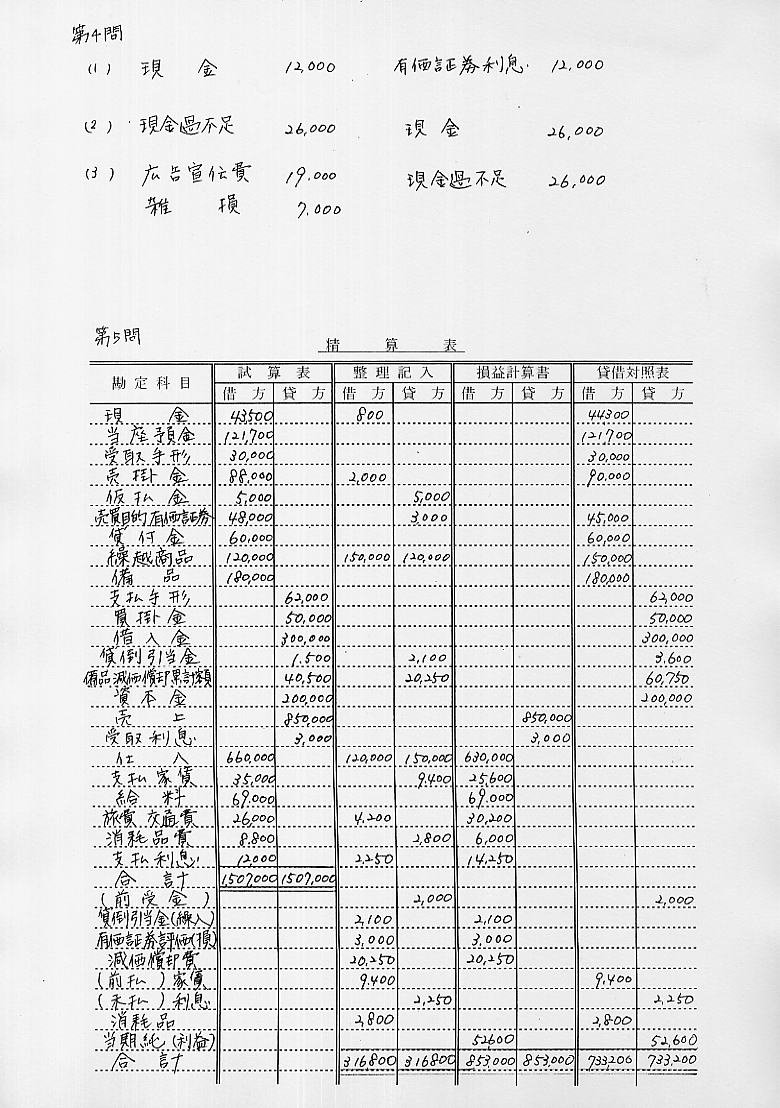 第4問
(1) 現金 12,000 有価証券利息 12,000
(2) 現金過不足 26,000 現金 26,000
(3) 広告宣伝費 19.000 現金過不足 26,000
雑損 7.000
第5問
精算表
勘定科目 試算表 整理記入 損益計算書 貸借対照表
借方 貸方 借方 貸方 借方 貸方 借方 貸方
現金 43,500 800 44300
当座預金 121,700 121,700
受取手形 30,000 30,000
売掛金 88,000 2,000 90,000
仮払金 5,000 5,000
売買目的有価証券 48,000 3,000 45,000
貸付金 60,000 60,000
繰越商品 120,000 150,000 120,000 150,000
備品 180,000 180,000
支払手形 62,000 62,000
買掛金 50,000 50,000
借入金 300,000 300,000
貸倒引当金 1.500 2,100 3.600
備品減価償却累計額 40,500 20,250 60,750
資本金 200,000 200,000
売上 850,000 850,000
受取利息 3,000 3,000
仕入 660,000 120,000 150,000 630,000
支払家賃 35,000 9,400 25,600
給料 69.000 69.000
旅費交通費 26,000 4,200 30,200
消耗品費 8.800 2,800 6,000
支払利息 12,000 2,250 14,250
合計 1,507,000 1507,000
(前受金) 2,000 2,000
貸倒引当金(繰入) 2,100 2,100
有価証券評価(損) 3,000 3,000
減価償却費 20,250 20,250
(前払)家賃 9.400 9,400
(未払)利息 2,250 2,250
消耗品 2,800 2,800
当期純(利益) 52600 52,600
合計 316800 316800 853,000 853,000 733,200 733,200